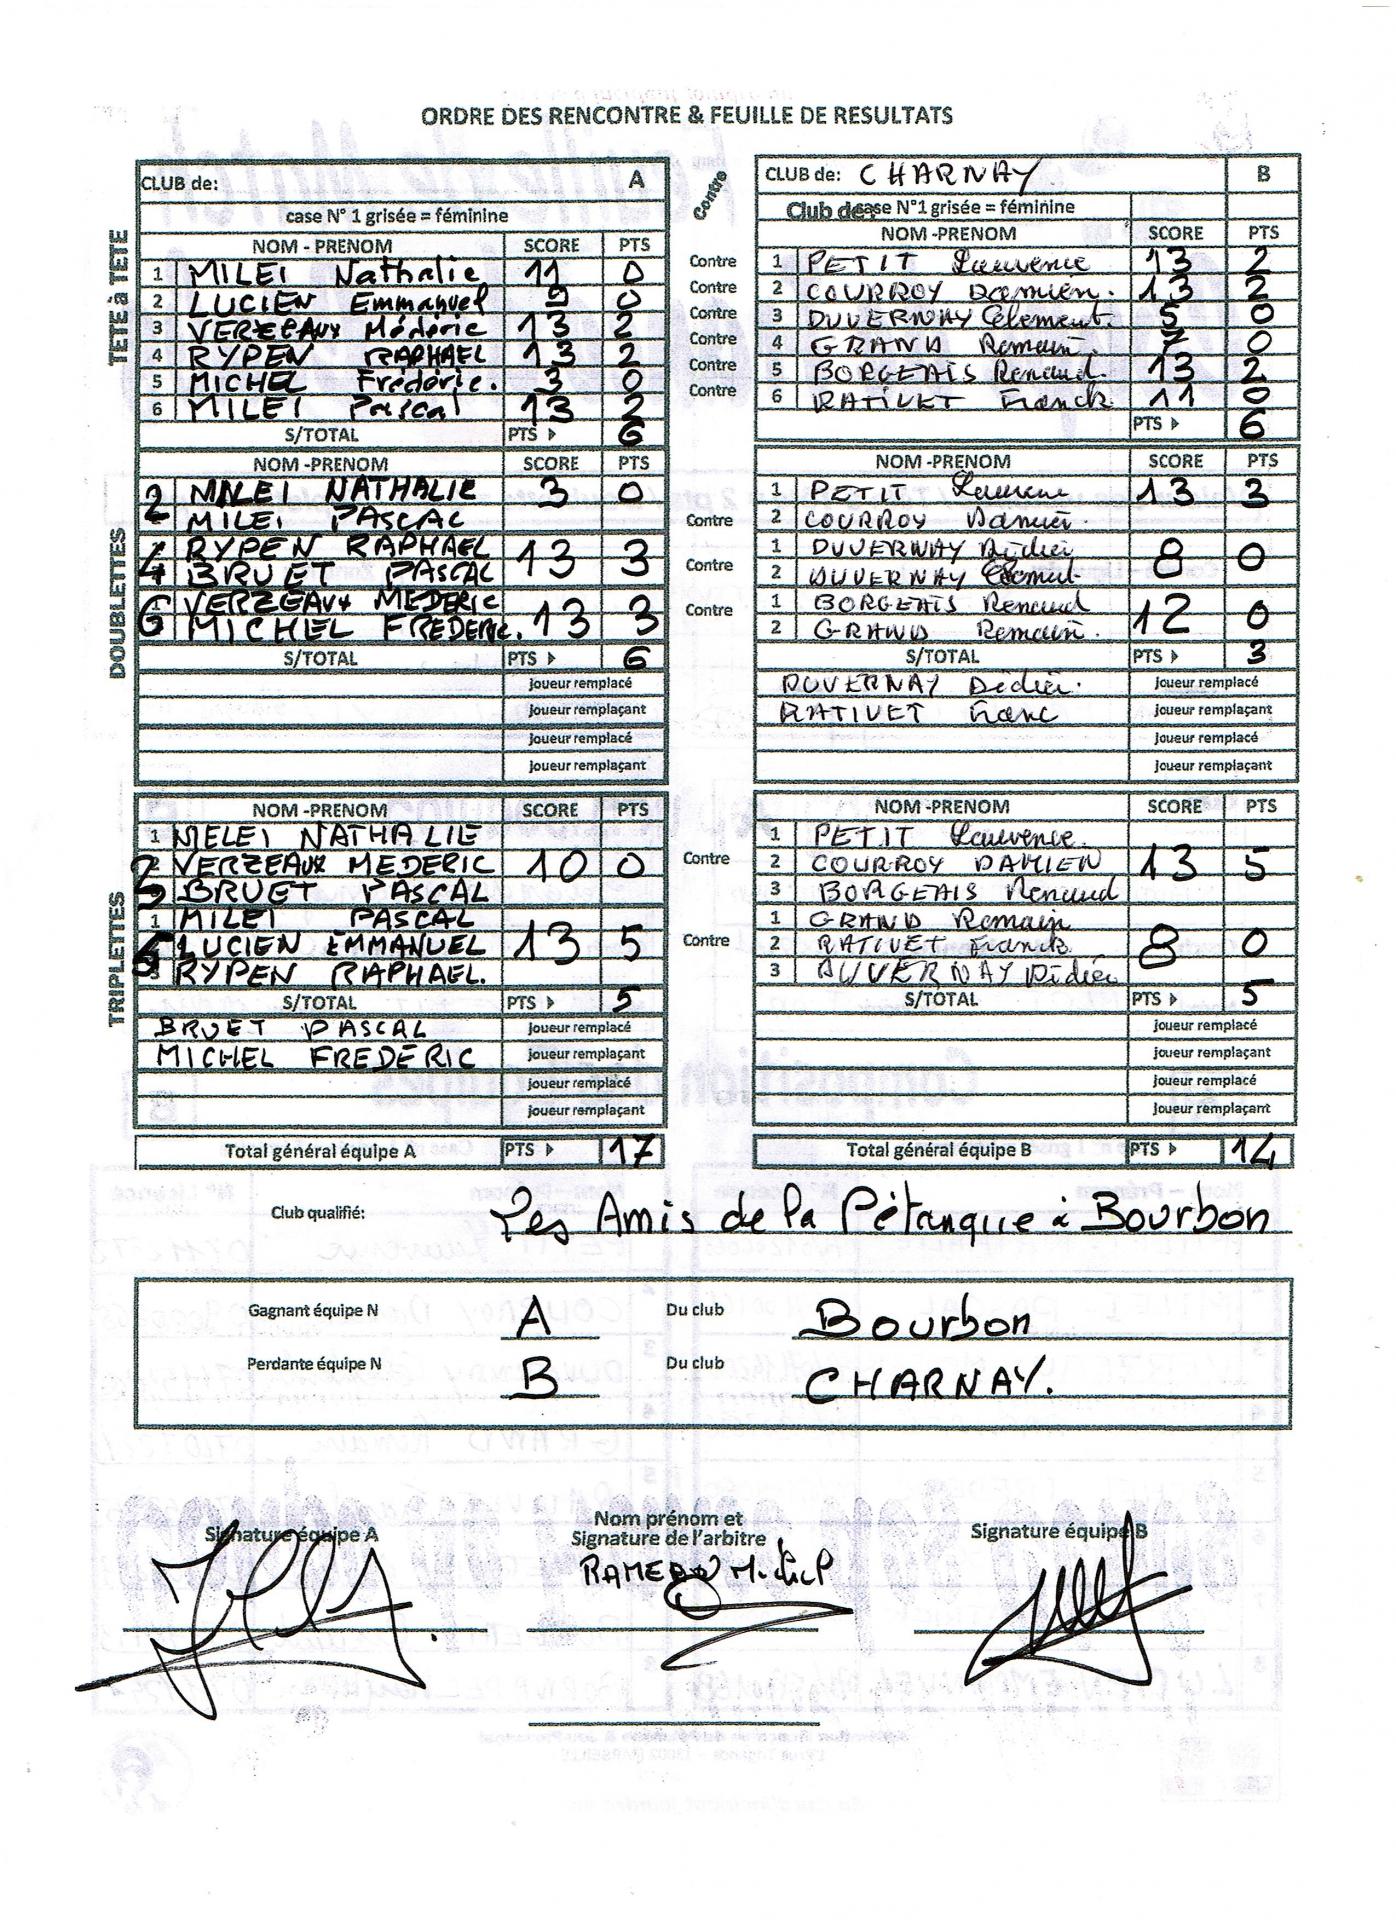 ORDRE DES RENCONTRE & FEUILLE DE RESULTATS
CLUB de: A
case N° 1 grisée = féminine
TETE à TETE
NOM - PRENOM SCORE PTS
1 MILEI Nathalie 11 0
2 LUCIEN Emmanuel 0
3 VERZEAUX Méderic 13 2
4 RYPEN RAPHAEL 13 2
5 MICHEL Frédéric. 3 0
6 MILEI Pascal 13 2
S/TOTAL PTS 6
DOUBLETTES
NOM -PRENOM SCORE PTS
2 MILEI NATHALIE 3 0
MILEI PASCAL
RYPEN RAPHAEL 13 3
4 BRUET PASCAL
VERZEAUX MEDERIC 13 3
6 MICHEL FREDERIC.
S/TOTAL PTS 6
Joueur remplacé
Joueur remplaçant
Joueur remplacé
Joueur remplaçant
TRIPLETTES
NOM -PRENOM SCORE PTS
1 MELEI NATHALIE
2 VERZEAUX MEDERIC 10 0
3 BRUET PASCAL
1 MILEI PASCAL
LUCIEN EMMANUEL 13 5
RYPEN RAPHAEL.
S/TOTAL PTS 5
BRUET PASCAL Joueur remplacé
MICHEL FREDERIC Joueur remplaçant
Joueur remplacé
Joueur remplaçant
Total général équipe A PTS 17
Contre
Contre
Contre
Contre
Contre
Contre
Contre
Contre
Contre
Contre
Contre
Contre
CLUB de: CHARNAY B
Club de: case N°1 grisée = féminine
NOM -PRENOM SCORE PTS
1 PETIT Laurence 13 2
2 COURROY Damien. 13 2
3 DUVERNAY Clement. 5 0
4 GRAND Romain. 7 0
5 BORGEAIS Renaud. 13 2
6 RATIVET Franck 11 0
PTS 6
NOM -PRENOM SCORE PTS
1 PETIT Laurence 13 3
2 COURROY Damien.
1 DUVERNAY Didier 8 0
2 DUVERNAY Clement
1 BORGEAIS Renaud 12 0
2 GRAND Romain.
S/TOTAL PTS 3
DUVERNAY Didier. Joueur remplacé
RATIVET Franc Joueur remplaçant
Joueur remplacé
Joueur remplaçant
NOM -PRENOM SCORE PTS
1 PETIT Laurence.
2 COURROY DAMIEN 13 5
3 BORGEAIS Renaud
1 GRAND Romain
2 RATIVET Franck 8 0
3 DUVERNAY Didier
S/TOTAL PTS 5
Joueur remplacé
Joueur remplaçant
Joueur remplacé
Joueur remplaçant
Total général équipe B PTS 14
Club qualifié: Les Amis de la Pétanque à Bourbon
Gagnant équipe N A Du club Bourbon
Perdante équipe N B Du club CHARNAY.
Signature équipe A
Nom prénom et
Signature de l'arbitre
Signature équipe B
Michel